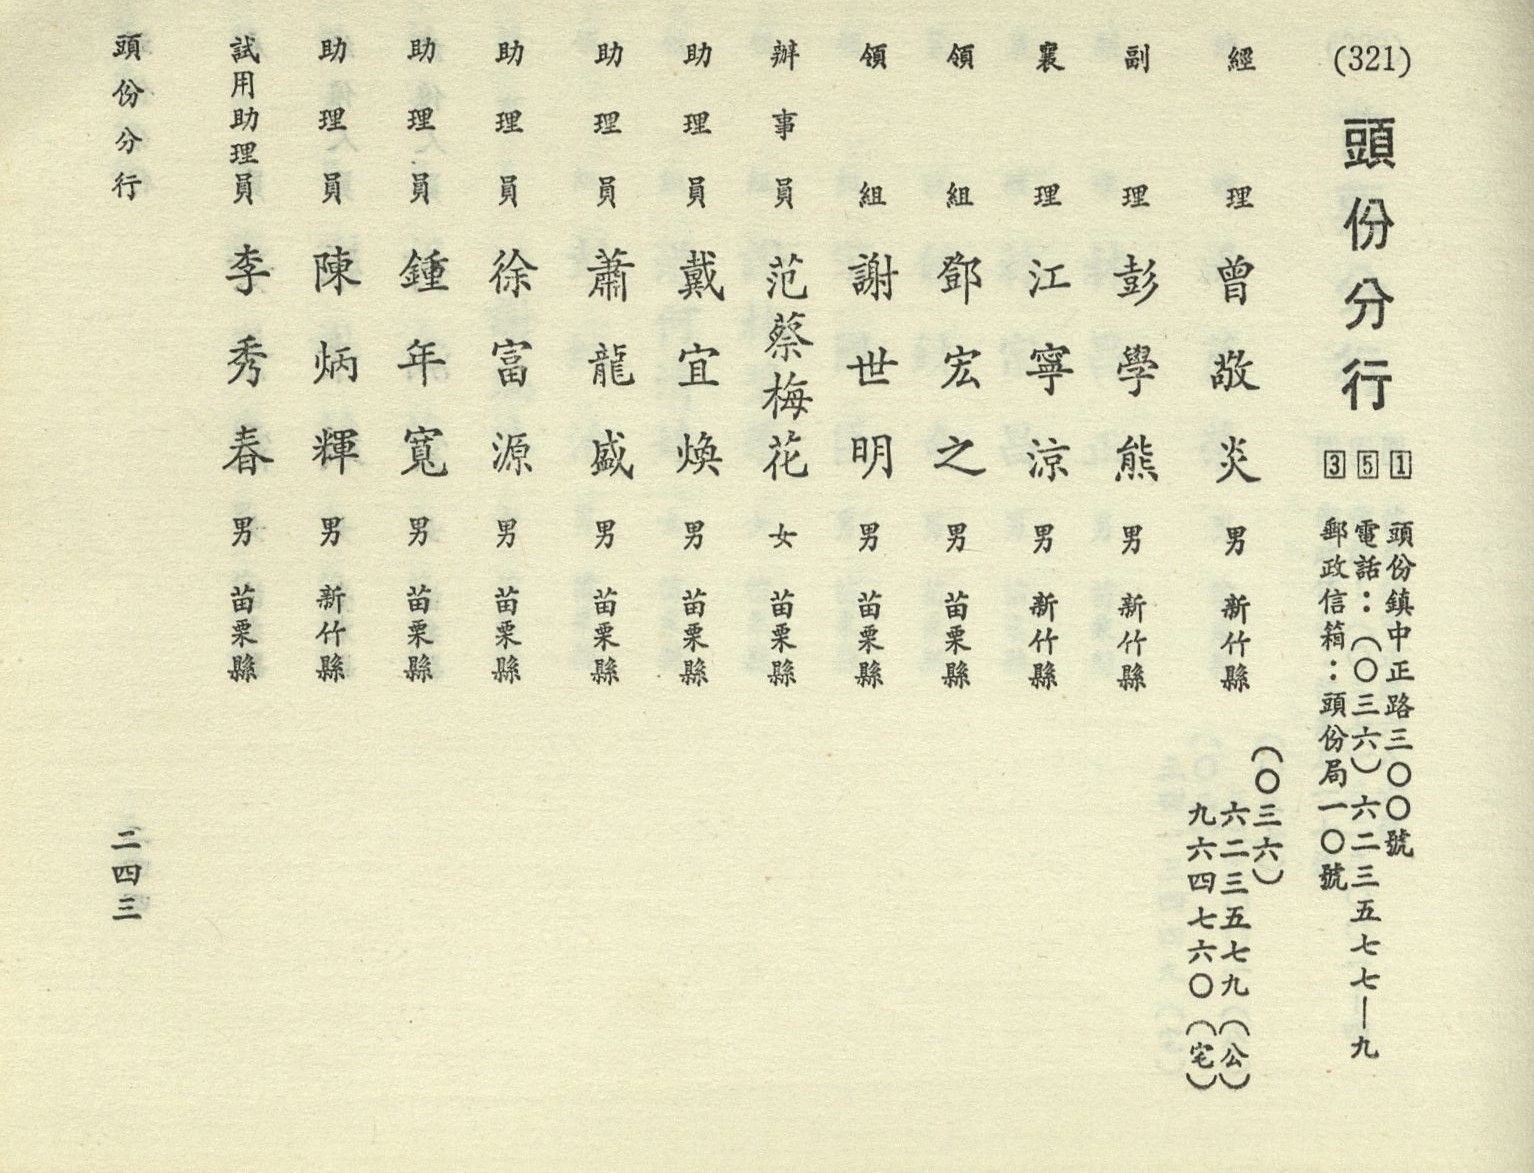 (321)
頭份分行
351
頭份鎮中正路三〇〇號
電話：(〇三六)六二三五七七—九
郵政信箱：頭份局一〇號
經理 曾敬炎 男 新竹縣
(〇三六)
六二三五七九(公)
九六四七六〇(宅)
副理 彭學熊 男 新竹縣
襄理 江寧涼 男 新竹縣
領組 鄧宏之 男 苗栗縣
領組 謝世明 男 苗栗縣
辦事員 范蔡梅花 女 苗栗縣
助理員 戴宜煥 男 苗栗縣
助理員 蕭龍盛 男 苗栗縣
助理員 徐富源 男 苗栗縣
助理員 鍾年寬 男 苗栗縣
助理員 陳炳輝 男 新竹縣
試用助理員 李秀春 男 苗栗縣
頭份分行
二四三